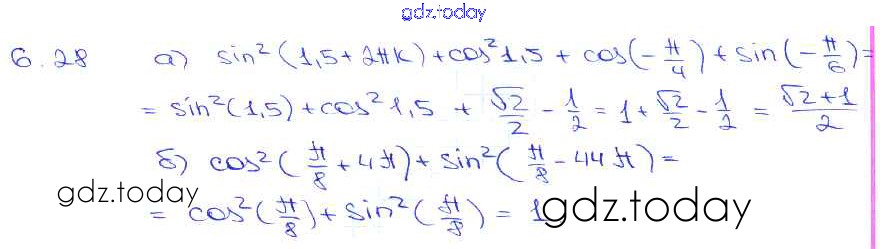 gdz.today
6.28 а) sin²(1,5 + 2πk) + cos²1,5 + cos(-π/4) + sin(-π/6) =
= sin²(1,5) + cos²1,5 + √2/2 - 1/2 = 1 + √2/2 - 1/2 = √2+1/2
б) cos²(π/8 + 4π) + sin²(π/8 - 44π) =
gdz.today
= cos²(π/8) + sin²(π/8) = 1
gdz.today